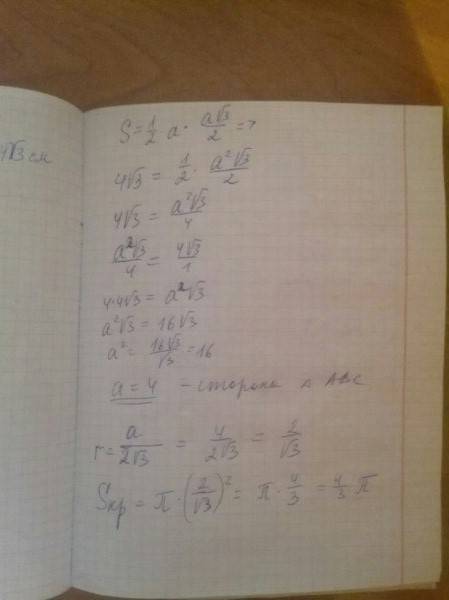 √3 см
S = 1/2 a · a√3/2 =>
4√3 = 1/2 · a²√3/2
4√3 = a²√3/4
a²√3/4 = 4√3/1
4·4√3 = a²√3
a²√3 = 16√3
a² = 16√3/√3 = 16
a = 4 – сторона Δ ABC
r = a/2√3 = 4/2√3 = 2/√3
Sкр = π · (2/√3)² = π · 4/3 = 4/3 π